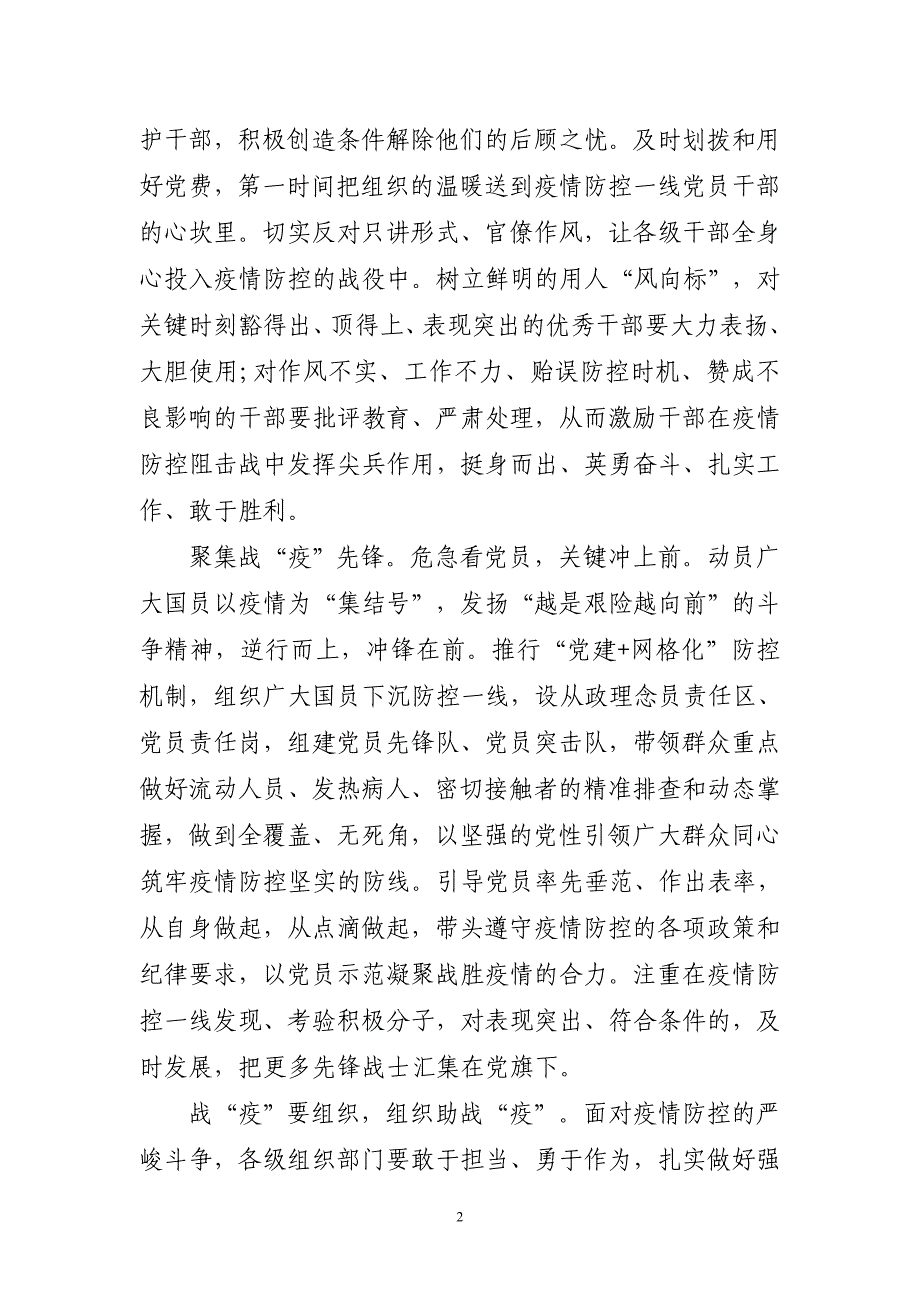 护干部，积极创造条件解除他们的后顾之忧。及时划拨和用
好党费，第一时间把组织的温暖送到疫情防控一线党员干部
的心坎里。切实反对只讲形式、官僚作风，让各级干部全身
心投入疫情防控的战役中。树立鲜明的用人“风向标”，对
关键时刻豁得出、顶得上、表现突出的优秀干部要大力表扬、
大胆使用;对作风不实、工作不力、贻误防控时机、赞成不
良影响的干部要批评教育、严肃处理，从而激励干部在疫情
防控阻击战中发挥尖兵作用，挺身而出、英勇奋斗、扎实工
作、敢于胜利。
聚集战“疫”先锋。危急看党员，关键冲上前。动员广
大国员以疫情为“集结号”，发扬“越是艰险越向前”的斗
争精神，逆行而上，冲锋在前。推行“党建+网格化”防控
机制，组织广大国员下沉防控一线，设从政理念员责任区、
党员责任岗，组建党员先锋队、党员突击队，带领群众重点
做好流动人员、发热病人、密切接触者的精准排查和动态掌
握，做到全覆盖、无死角，以坚强的党性引领广大群众同心
筑牢疫情防控坚实的防线。引导党员率先垂范、作出表率，
从自身做起，从点滴做起，带头遵守疫情防控的各项政策和
纪律要求，以党员示范凝聚战胜疫情的合力。注重在疫情防
控一线发现、考验积极分子，对表现突出、符合条件的，及
时发展，把更多先锋战士汇集在党旗下。
战“疫”要组织，组织助战“疫”。面对疫情防控的严
峻斗争，各级组织部门要敢于担当、勇于作为，扎实做好强
2